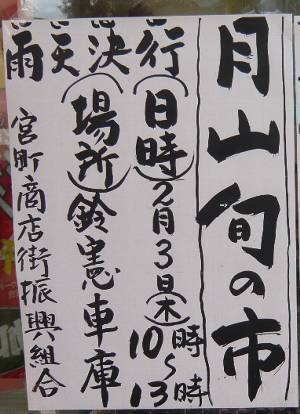 雨天決行
月山旬の市
(日時)2月3日(木)10時~13時
(場所)鈴憲車庫
宮町商店街振興組合